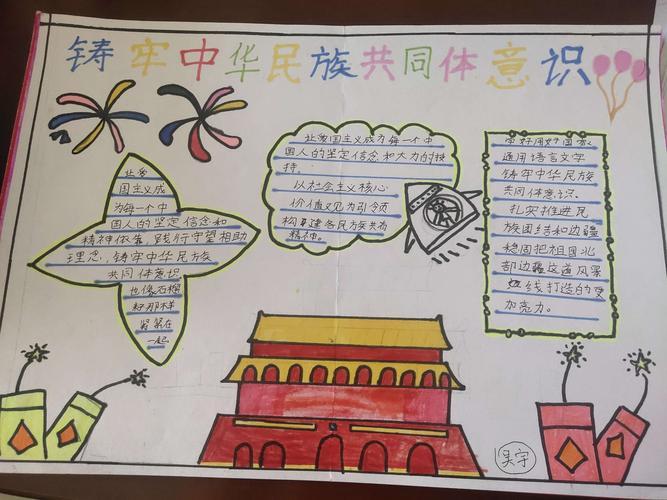 铸牢中华民族共同体意识
让爱
国主义成
为每一个中
国人的坚定信念和
精神依靠,践行守望相助
理念,铸牢中华民族
共同体意识
也像石榴
籽那样
紧紧在
一起
让爱国主义成为每一个中
国人的坚定信念和大力的扶
持。
以社会主义核心
价值义见为引领
构建各民族共有
精神。
族
通用语言文字
铸牢中华民族
共同体意识。
扎实推进民
族团结和边疆
稳固把祖国北
部边疆这道风景
线打造的更
加亮力。
吴宇